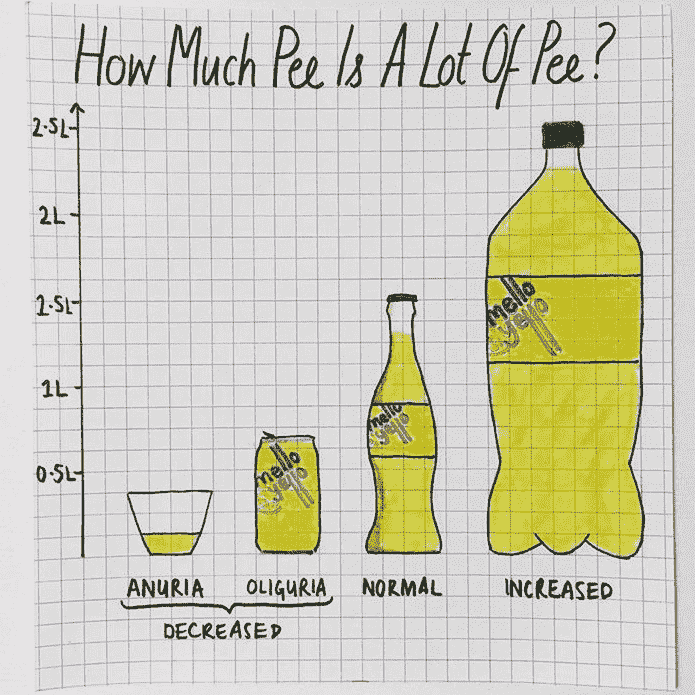 How Much Pee Is A Lot Of Pee?
2.5L
2L
1.5L
1L
0.5L
mello
yello
mello
yello
mello
yello
ANURIA OLIGURIA NORMAL INCREASED
DECREASED